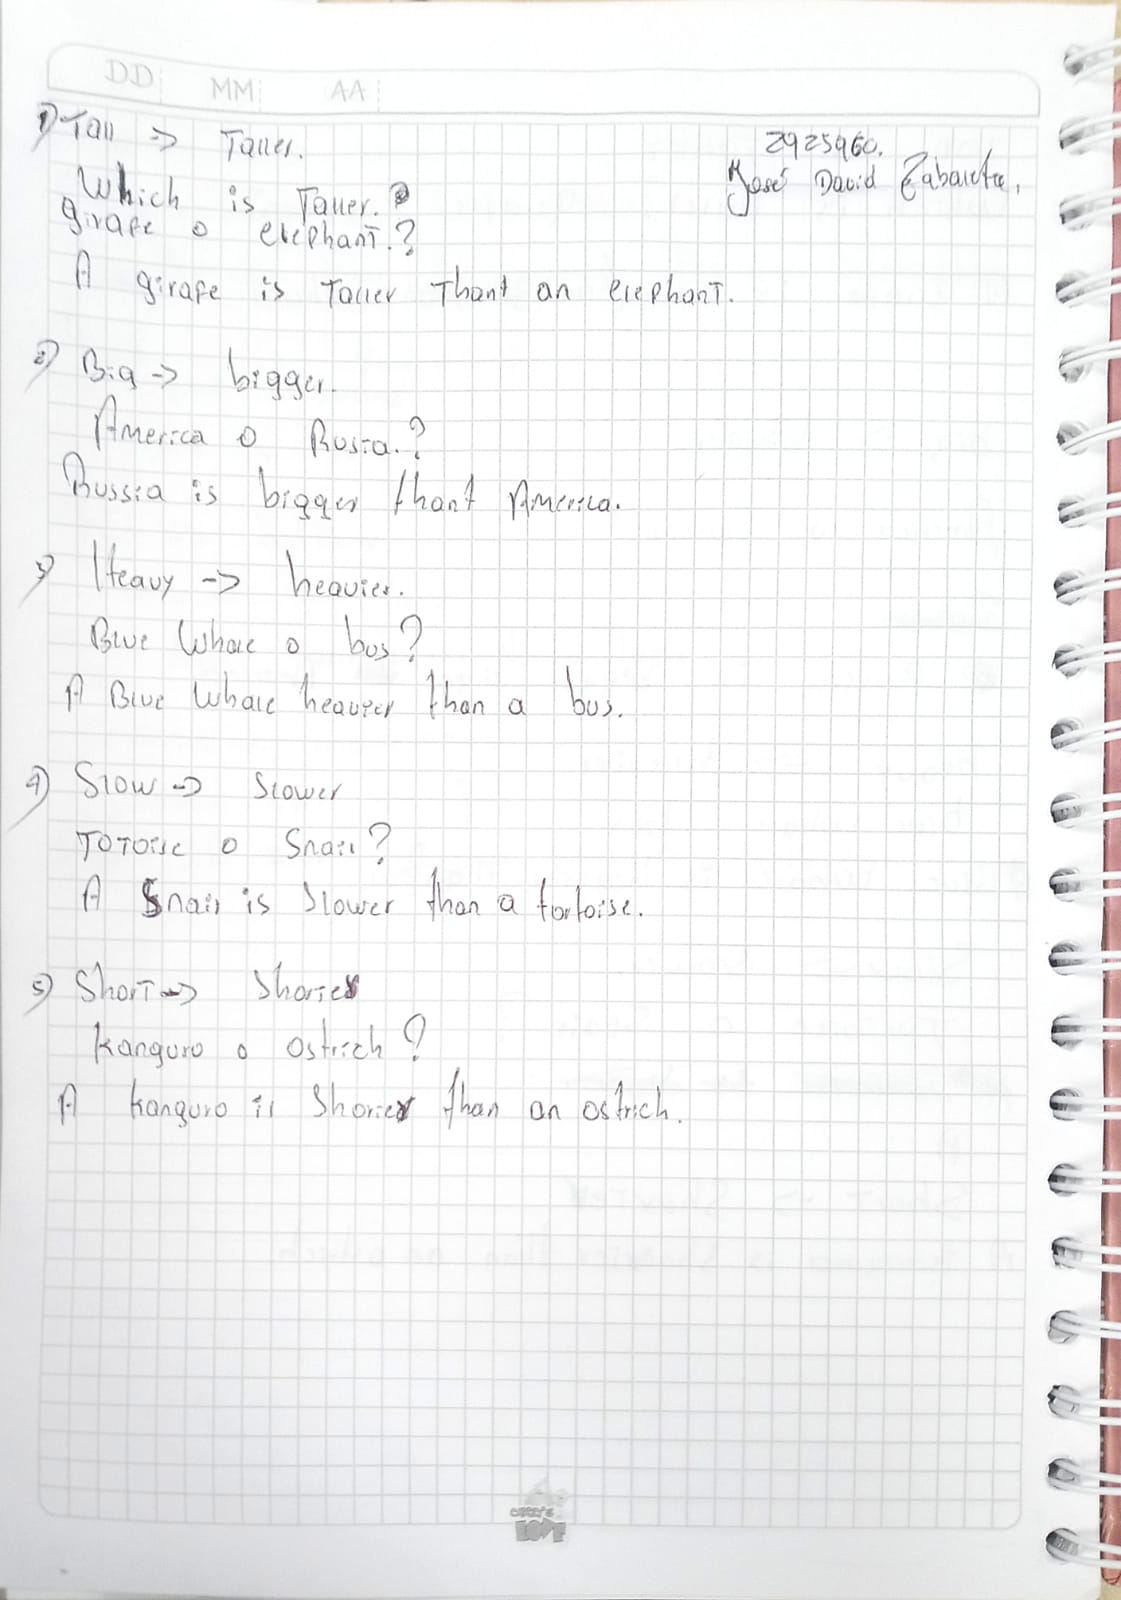 DD MM AA
1) Tall -> Taller.
2925960.
José David Zabaleta.
Which is Taller.?
girafe o elephant.?
A girafe is Taller Thant an elephant.
2) Big -> bigger.
America o Rusia.?
Russia is bigger thant America.
3) Heavy -> heavier.
Blue Whale o bus?
A Blue Whale heavier than a bus.
4) Slow -> Slower
ToToise o Snail?
A Snail is Slower than a tortoise.
5) Short -> Shorter
Kanguro o ostrich?
A kanguro is Shorter than an ostrich.
LOVE